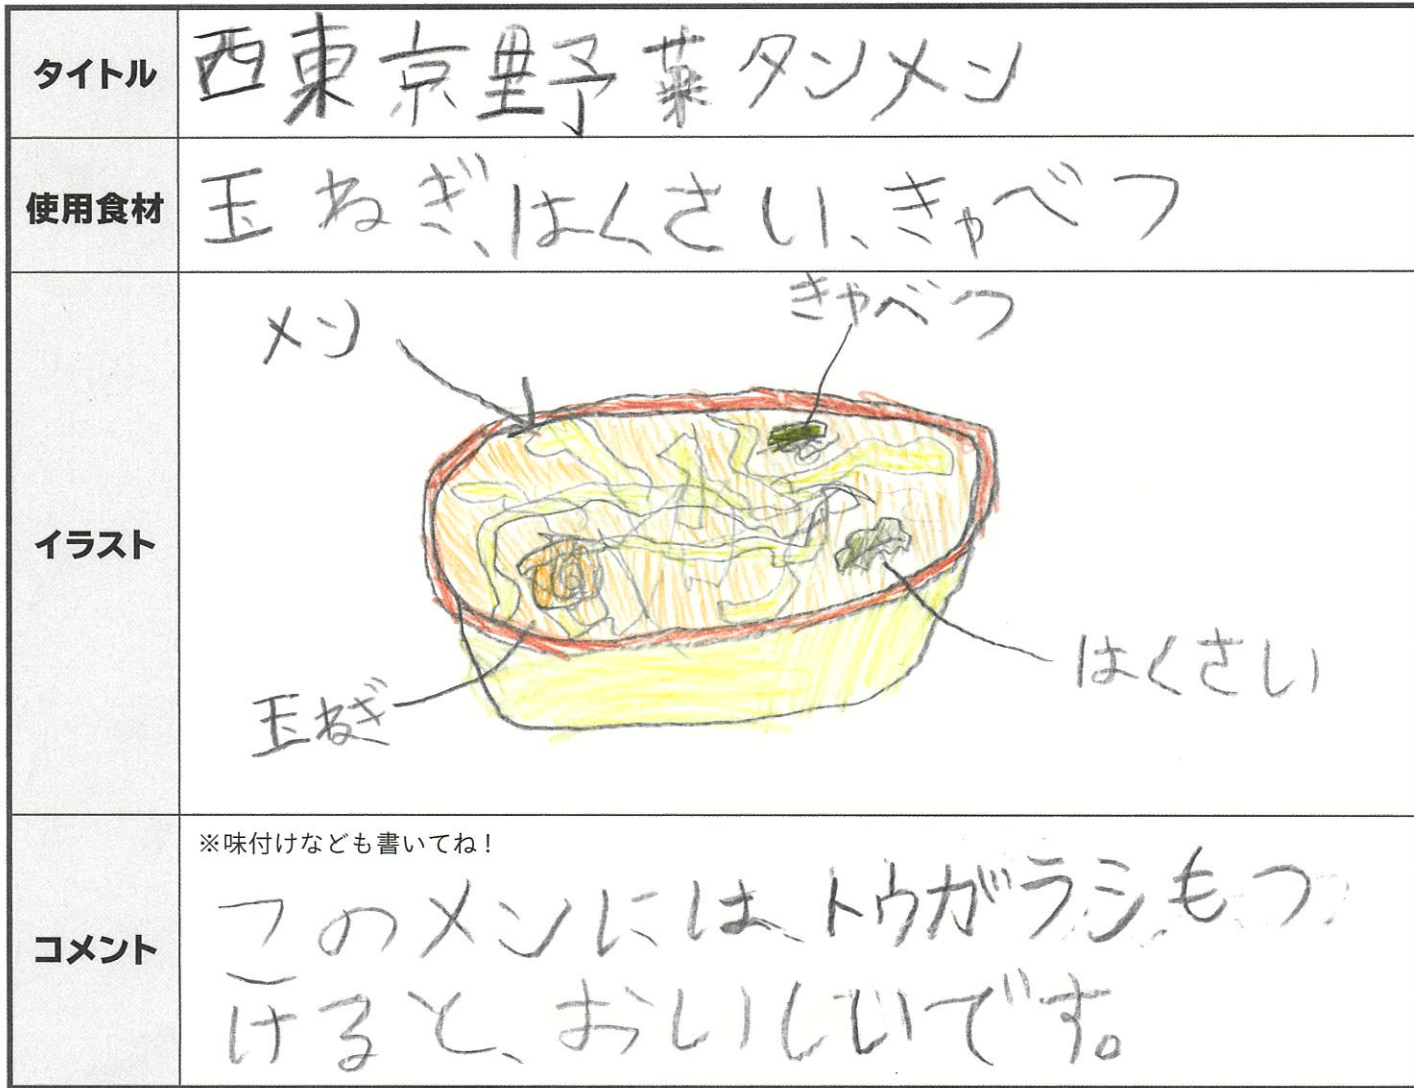 タイトル
西東京野菜タンメン
使用食材
玉ねぎ、はくさい、きゃべつ
イラスト
メン
きゃべつ
はくさい
玉ねぎ
コメント
※味付けなども書いてね!
このメンには、トウガラシもつ
けると、おいしいです。